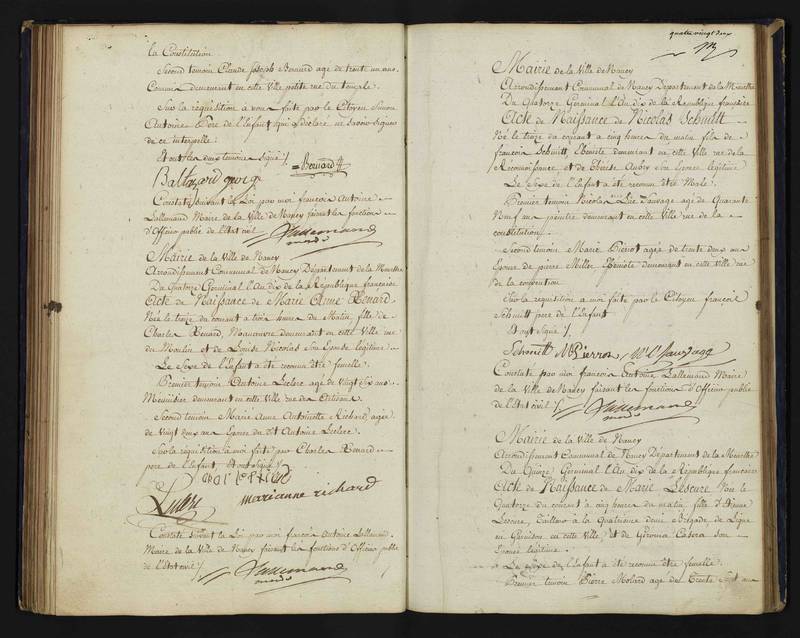 la Constitution
Second temoin Claude Joseph Bernard agé de trente un ans
Commis demeurant en cette Ville petite rue du temple
Sur la réquisition a nous faite par le Citoyen Simon
Antoine père de l'Enfant qui a déclaré ne savoir signer
de ce interpellé
Et ont les deux temoins signé /.
Bernard
Baltazard george
Constaté suivant la Loi par moi françois Antoine
Lallemand Maire de la Ville de Nancy faisant les fonctions
d'Officier public de l'Etat civil
Lallemand
Mairie de la Ville de Nancy
Arrondissement Communal de Nancy Département de la Meurthe
Du Quatorze Germinal l'An dix de la République francaise
Acte de Naissance de Marie Anne Renard
Née le treize du courant a trois heures du Matin, fille de
Charles Renard, Manoeuvre demeurant en cette Ville rue
du Moulin et de Louise Nicolas son Epouse légitime
Le Sexe de l'Enfant a été reconnu être femelle.
Premier temoin Antoine Leclerc agé de Vingt Six ans
Menuisier demeurant en cette Ville rue des Artisans
Second temoin Marie Anne Antoinette Richard agée
de Vingt deux ans Epouse du dit Antoine Leclerc
Sur la réquisition à moi faite par Charles Renard
pere de l'Enfant, et ont Signé /.
marianne richard
Constaté suivant la Loi par moi francois Antoine Lallemand
Maire de la Ville de Nancy faisant les fonctions d'Officier public
de l'Etat civil /.
Lallemand
quatre vingt deux
Mairie de la Ville de Nancy
Arrondissement Communal de Nancy Département de la Meurthe
Du Quatorze Germinal l'An dix de la République francaise
Acte de Naissance de Nicolas Schmitt
Né le treize du courant a cinq heures du matin fils de
francois Schmitt, Ebeniste demeurant en cette Ville rue de la
Réconnoissance et de Thérèse Aubry son Epouse légitime
Le Sexe de l'Enfant a été reconnu être Male.
Premier temoin Nicolas Luc Sauvage agé de Quarante
Neuf ans peintre demeurant en cette Ville rue de la
constitution
Second temoin Marie Pierrot agée de trente deux ans
Epouse de pierre Ebéniste demeurant en cette Ville rue
de la convention
Sur la requisition a moi faite par le Citoyen françois
Schmitt pere de l'Enfant
Et ont Signé /.
Schmitt M Pierron Sauvage
Constaté par moi francois Antoine Lallemand Maire
de la Ville de Nancy faisant les fonctions d'Officier public
de l'Etat civil /.
Lallemand
Mairie de la Ville de Nancy
Arrondissement Communal de Nancy Département de la Meurthe
Du Quinze Germinal l'An dix de la République francaise
Acte de Naissance de Marie Lescure Née le
Quatorze du courant a cinq heures du matin fille d'Etienne
Lescure, Tailleur à la Quatrieme demi Brigade de Ligne
en Garnison en cette Ville, et de son
Epouse légitime
Le Sexe de l'Enfant a été reconnu être femelle.
Premier temoin Pierre Molard agé de Trente Sept ans